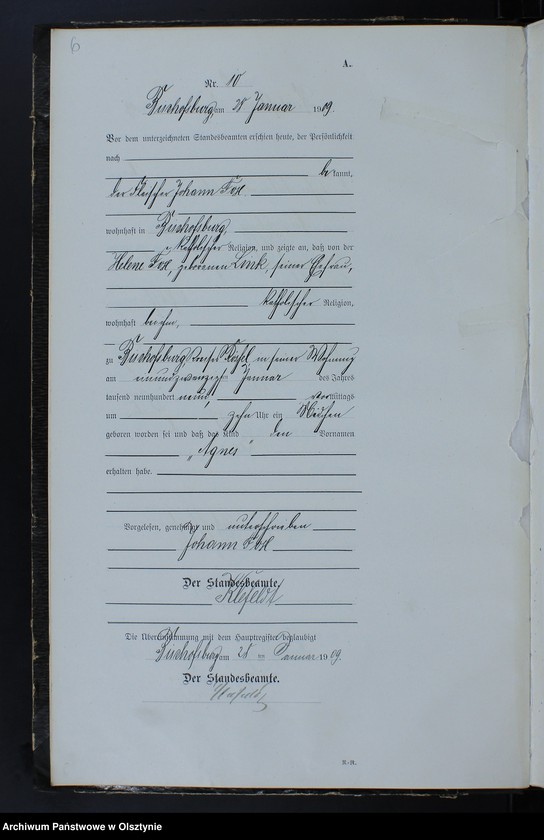 6
A.
Nr. 10
Bischofsburg am 28 Januar 1909.
Vor dem unterzeichneten Standesbeamten erschien heute, der Persönlichkeit
nach
bekannt,
der Fleischer Johann
wohnhaft in Bischofsburg,
katholischer Religion, und zeigte an, daß von der
Helene geborenen Link, seiner Ehefrau,
katholischer Religion,
wohnhaft bei ihm,
zu Bischofsburg Kreises Rössel in seiner Wohnung
am Januar des Jahres
tausend neunhundert neun, vormittags
um zehn Uhr ein Mädchen
geboren worden sei und daß das Kind den Vornamen
„Agnes“
erhalten habe.
Vorgelesen, genehmigt und unterschrieben
Johann
Der Standesbeamte.
Klefeldt
Die Übereinstimmung mit dem Hauptregister beglaubigt
Bischofsburg am 28 ten Januar 1909.
Der Standesbeamte.
R-R.
Archiwum Państwowe w Olsztynie